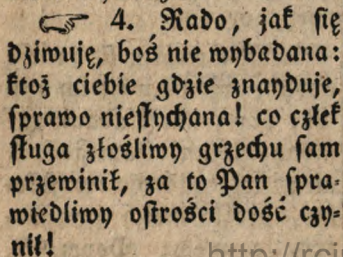 ☞ 4. Rado, jak się
dziwuję, boś nie wybadana:
ktoż ciebie gdzie znayduje,
sprawo niesłychana! co człek
sługa złośliwy grzechu sam
przewinił, za to Pan spra-
wiedliwy ostrości dość czy-
nił!
http://rci